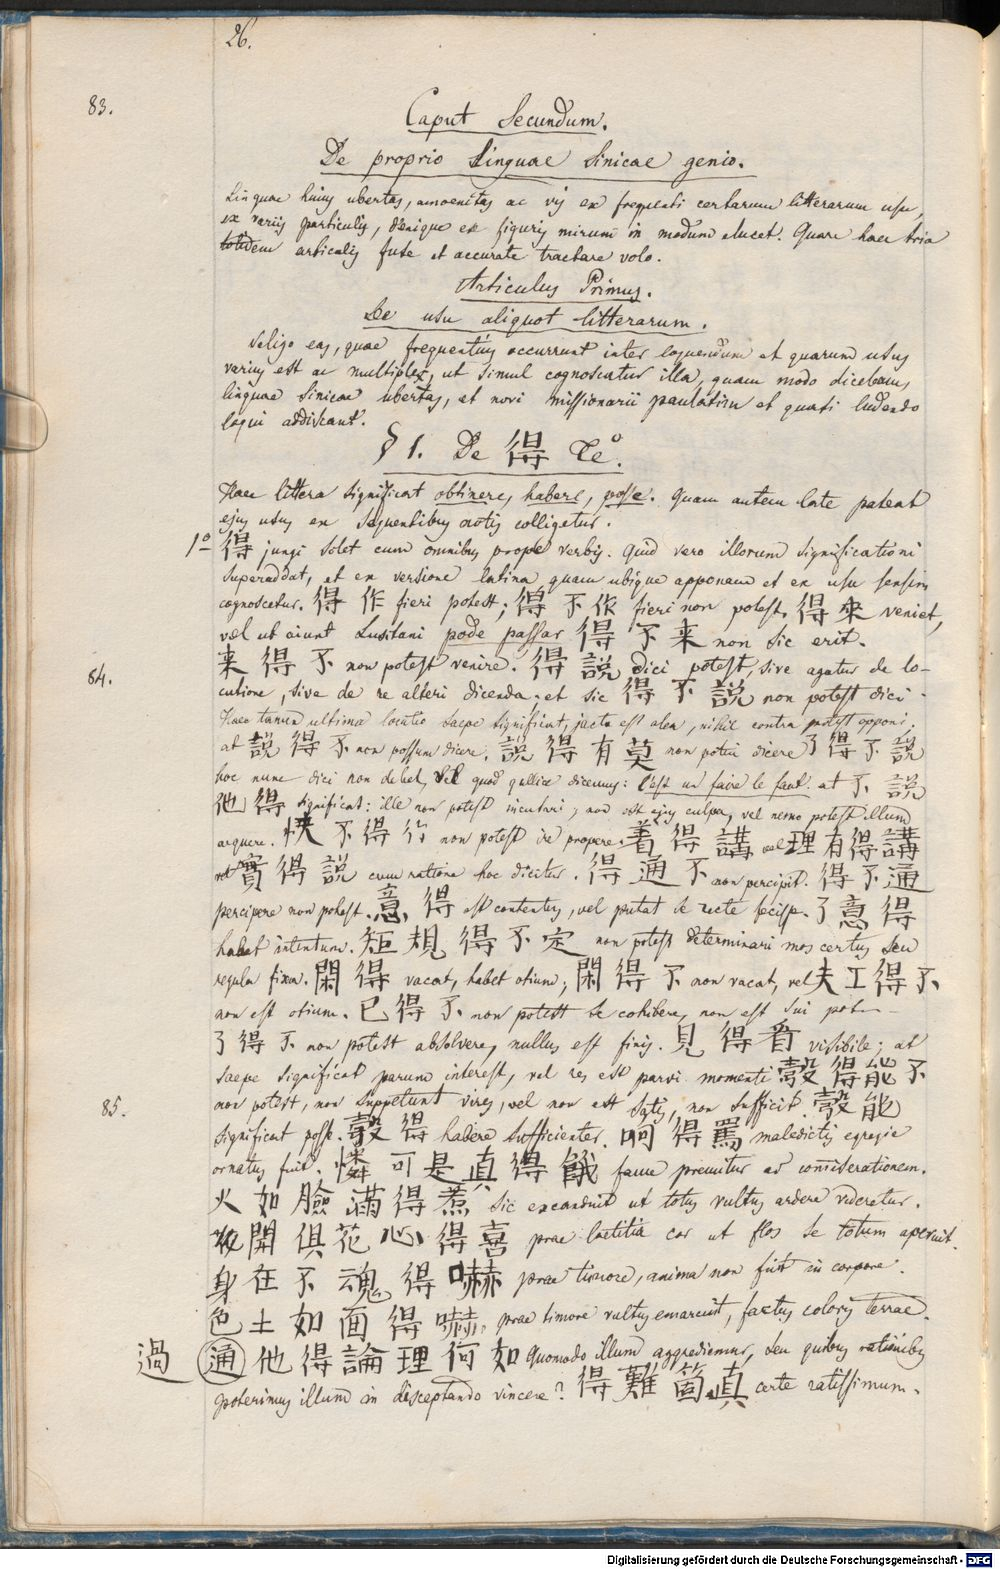 26.
83.
Caput Secundum.
De proprio Linguae Sinicae genio.
Linguae huius ubertas, amoenitas ac vis ex frequenti certarum litterarum usu,
ex variis particulis, denique ex figuris mirum in modum elucet. Quare haec tria
totidem articulis fuse et accurate tractare volo.
Articulus Primus.
De usu aliquot litterarum.
Seligo eas, quae frequentius occurrunt inter loquendum et quarum usus
varius est ac multiplex, ut simul cognoscatur illa, quam modo dicebam,
linguae Sinicae ubertas, et novi missionarii paulatim et quasi ludendo
loqui addiscant.
§ 1. De 得 Te°.
Haec littera significat obtinere, habere, posse. Quam autem late pateat
ejus usus ex sequentibus notis colligetur.
1° 得 jungi solet cum omnibus prope verbis. Quid vero illorum significationi
superaddat, et ex versione latina quam ubique apponam et ex usu sensim
cognoscetur. 得 作 fieri potest; 得 不 作 fieri non potest. 得 來 veniet,
vel ut aiunt Lusitani pode passar 得 不 来 non sic erit.
84.
来 得 不 non potest venire. 得 説 dici potest, sive agatur de lo-
cutione, sive de re alteri dicenda; et sic 得 不 說 non potest dici.
Haec tamen ultima locutio saepe significat, jacta est alea, nihil contra potest opponi.
at 說 得 不 non possum dicere. 說 得 有 莫 non potui dicere 了 得 不 說
hoc nunc dici non debet, vel quod gallice dicemus: c'est un faire le faut. at 不 説
他 得 significat: ille non potest incusari, non est ejus culpa, vel nemo potest illum
arguere. 快 不 得 行 non potest ire propere. 着 得 講 vel 理 有 得 講
vel 實 得 説 cum ratione hoc dicitur. 得 通 不 non percipit. 得 不 通
percipere non potest. 意 得 est contentus, vel putat se recte fecisse. 了 意 得
habet intentum. 矩 規 得 不 定 non potest determinari mos certus seu
regula fixa. 閑 得 vacat, habet otium; 閑 得 不 non vacat, vel 夫 工 得 不
non est otium. 已 得 不 non potest se cohibere, non est sui
了 得 不 non potest absolvere, nullus est finis. 見 得 看 visibile; at
saepe significat parum interest, vel res est parvi momenti 彀 得 能 不
85.
non potest, non suppetunt vires, vel non est satis, non sufficit. 彀 能
significat posse. 彀 得 habere sufficienter. 呵 得 罵 maledictis egregie
ornatus fuit. 憐 可 是 真 得 餓 fame premitur ad considerationem.
火 如 臉 滿 得 惹 sic excanduit ut totus vultus ardere videretur.
開 俱 花 心 得 喜 prae laetitia cor ut flos se totum aperuit.
身 在 不 魂 得 嚇 prae timore, anima non fuit in corpore.
色 土 如 面 得 嚇, prae timore vultus emarcuit, factus coloris terrae.
過 通 他 得 論 理 何 如 Quomodo illum aggrediemur, seu quibus rationibus
poterimus illum in disceptando vincere? 得 難 箇 真 certe rarissimum.
Digitalisierung gefördert durch die Deutsche Forschungsgemeinschaft - DFG